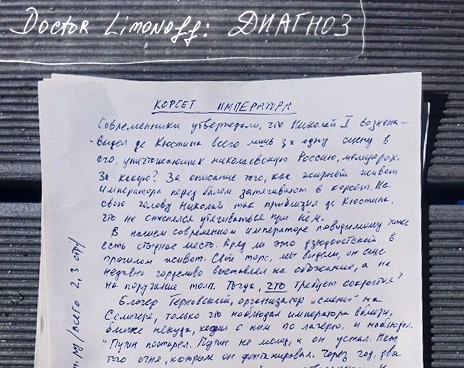 Doctor Limonoff: ДИАГНОЗ
КОРСЕТ ИМПЕРАТРА
Современники утверждали, что Николай I возне-
-видел де Кюстина всего лишь за одну сцену в
его, уничтожающих николаевскую Россию, мемуарах.
За какую? За описание того, как жирный живот
императора перед балом затягивают в корсет. На
свою голову Николай так приблизил де Кюстина,
что не стеснялся утягиваться при нём.
В нашем современном императоре повидимому тоже
есть стыдное место. Вряд ли это дзюдоистский, в
прошлом живот. Свой торс, мы видели, он ещё
недавно горделиво выставлял на обожание, а не
на поругание толп. Тогда, что требует сокрытия?
Блогер Терновский, организатор "смены" на
Селигере, только что наблюдал императора вблизи,
ближе некуда, ходил с ним по лагерю, и наблюдал.
"Путин постарел. Путин не молод, и он устал. Нет
того огня, которым он фонтанировал. Через год, два
/всего 2,3 стр/